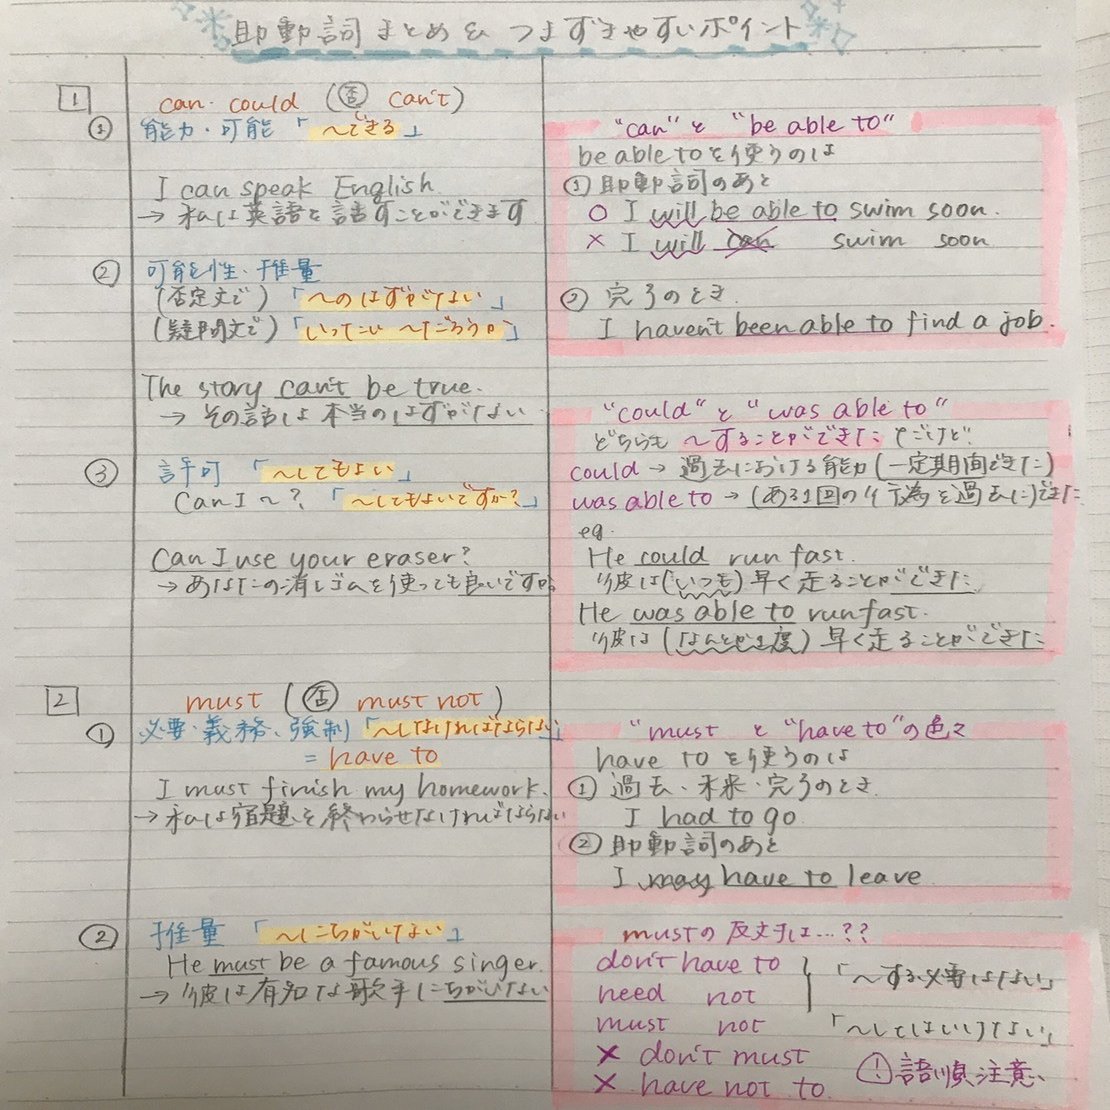 助動詞まとめ& つまずきやすいポイント
1
can・could (否 can't)
① 能力・可能「〜できる」
I can speak English.
→ 私は英語を話すことができます
② 可能性・推量
(否定文で)「〜のはずがない」
(疑問文で)「いったい〜だろうか」
The story can't be true.
→ その話は本当のはずがない
③ 許可「〜してもよい」
Can I 〜?「〜してもよいですか?」
Can I use your eraser?
→ あなたの消しゴムを使っても良いですか
"can" と "be able to"
be able toを使うのは
① 助動詞のあと
○ I will be able to swim soon.
× I will can swim soon
② 完了のとき.
I haven't been able to find a job.
"could" と "was able to"
どちらも 〜することができた だけど
could → 過去における能力(一定期間できた)
was able to → (ある1回の行為を過去に)できた
eg.
He could run fast.
彼は(いつも)早く走ることができた
He was able to run fast.
彼は(なんとか1度)早く走ることができた
2
must (否 must not)
① 必要・義務、強制「〜しなければならない」
= have to
I must finish my homework.
→ 私は宿題を終わらせなければならない
② 推量「〜にちがいない」
He must be a famous singer.
→ 彼は有名な歌手にちがいない
"must と "have to"の色々
have toを使うのは
① 過去・未来・完了のとき
I had to go.
② 助動詞のあと
I may have to leave
mustの反対は...??
don't have to
need not
「〜する必要はない」
must not 「〜してはいけない」
× don't must
× have not to
! 語順注意、